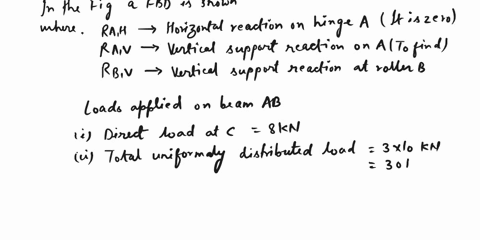 In the Fig a FBD is shown
where. RA,H → Horizontal reaction on hinge A (It is zero)
RA,V → Vertical support reaction on A (To find)
RB,V → Vertical support reaction at roller B
Loads applied on beam AB
(i) Direct load at C = 8kN
(ii) Total uniformaly distributed load = 3x10 kN
= 30